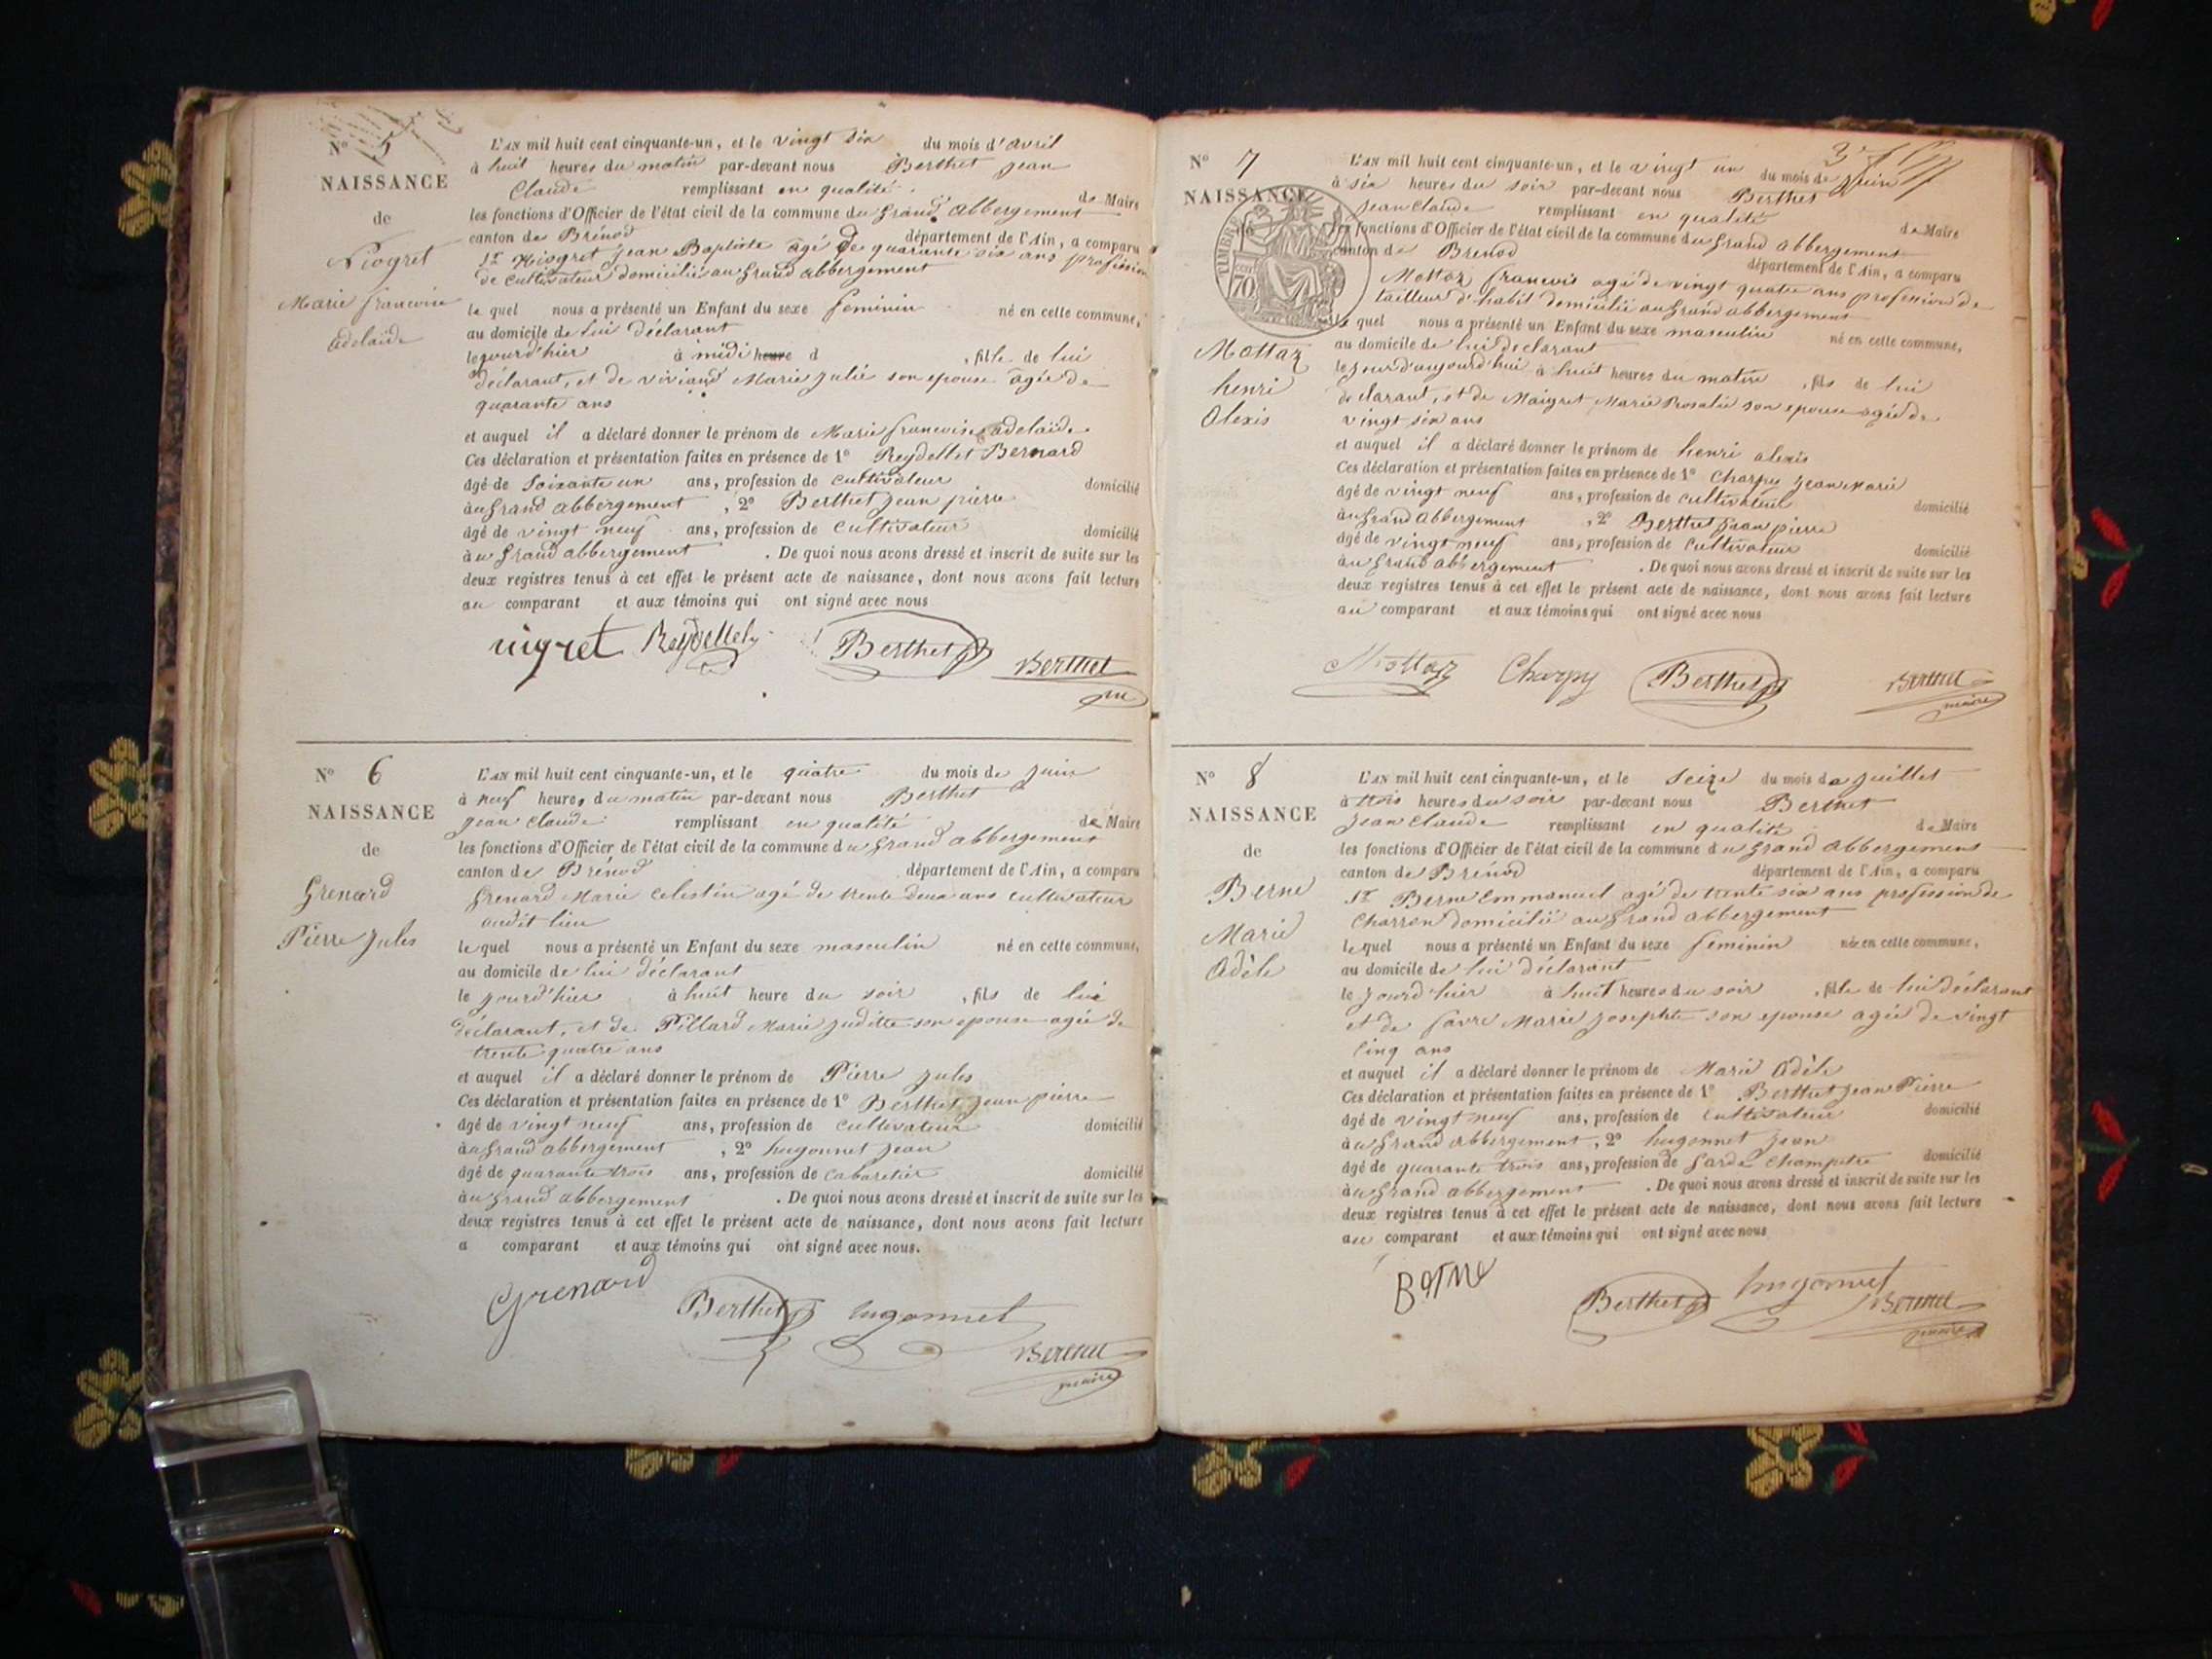 N° 5
NAISSANCE
de
Niogret
Marie françoise
adelaïde
L'AN mil huit cent cinquante-un, et le vingt six du mois d'avril
à huit heures du matin par-devant nous Berthet Jean
Claude remplissant en qualité de Maire
les fonctions d'Officier de l'état civil de la commune du Grand abbergement
canton de Brénod département de l'Ain, a comparu
Sr Niogret Jean Baptiste agé de quarante six ans profession
de cultivateur domicilié au Grand abbergement
le quel nous a présenté un Enfant du sexe feminin né en cette commune,
au domicile de lui déclarant
le jourd'hier à midi heure d , fille de lui
déclarant, et de viviand Marie julie son epouse agée de
quarante ans
et auquel il a déclaré donner le prénom de Marie françoise adelaïde
Ces déclaration et présentation faites en présence de 1° Reydellet Bernard
âgé de soixante un ans, profession de cultivateur domicilié
au Grand abbergement , 2° Berthet jean pierre
âgé de vingt neuf ans, profession de cultivateur domicilié
au Grand abbergement . De quoi nous avons dressé et inscrit de suite sur les
deux registres tenus à cet effet le présent acte de naissance, dont nous avons fait lecture
au comparant et aux témoins qui ont signé avec nous
nigret Reydellet Berthet Berthet
N° 6
NAISSANCE
de
Grenard
Pierre Jules
L'AN mil huit cent cinquante-un, et le quatre du mois de juin
à neuf heures du matin par-devant nous Berthet
jean Claude remplissant en qualité de Maire
les fonctions d'Officier de l'état civil de la commune du Grand abbergement
canton de Brénod département de l'Ain, a comparu
Grenard Marie Celestin agé de trente deux ans cultivateur
audit lieu
le quel nous a présenté un Enfant du sexe masculin né en cette commune,
au domicile de lui déclarant
le jourd'hier à huit heure du soir , fils de lui
déclarant, et de Pillard Marie juditte son epouse agée de
trente quatre ans
et auquel il a déclaré donner le prénom de Pierre jules
Ces déclaration et présentation faites en présence de 1° Berthet jean pierre
âgé de vingt neuf ans, profession de cultivateur domicilié
au Grand abbergement , 2° hugonnet jean
âgé de quarante trois ans, profession de cabaretier domicilié
au Grand abbergement . De quoi nous avons dressé et inscrit de suite sur les
deux registres tenus à cet effet le présent acte de naissance, dont nous avons fait lecture
a comparant et aux témoins qui ont signé avec nous.
Grenard Berthet hugonnet
Berthet
maire
N° 7
NAISSANCE
TIMBRE
70
Mottaz
henri
Alexis
L'AN mil huit cent cinquante-un, et le vingt un du mois de juin
à six heures du soir par-devant nous Berthet
jean Claude remplissant en qualité de Maire
les fonctions d'Officier de l'état civil de la commune du Grand abbergement
canton de Brenod département de l'Ain, a comparu
Mottaz françois agé de vingt quatre ans profession de
tailleur d'habit domicilié au Grand abbergement
le quel nous a présenté un Enfant du sexe masculin né en cette commune,
au domicile de lui declarant
le jour d'aujourd'hui à huit heures du matin , fils de lui
declarant, et de Maigret Marie Rosalie son epouse agée de
vingt six ans
et auquel il a déclaré donner le prénom de henri alexis
Ces déclaration et présentation faites en présence de 1° Charpy jean marie
âgé de vingt neuf ans, profession de cultivateur domicilié
au Grand abbergement , 2° Berthet jean pierre
âgé de vingt neuf ans, profession de cultivateur domicilié
au Grand abbergement . De quoi nous avons dressé et inscrit de suite sur les
deux registres tenus à cet effet le présent acte de naissance, dont nous avons fait lecture
au comparant et aux témoins qui ont signé avec nous
Mottaz Charpy Berthet Berthet
maire
N° 8
NAISSANCE
de
Berne
Marie
Adèle
L'AN mil huit cent cinquante-un, et le Seize du mois de juillet
à trois heures du soir par-devant nous Berthet
jean Claude remplissant en qualité de Maire
les fonctions d'Officier de l'état civil de la commune du Grand abbergement
canton de Brénod département de l'Ain, a comparu
Sr Berne Emmanuel agé de trente six ans profession de
charron domicilié au Grand abbergement
le quel nous a présenté un Enfant du sexe feminin née en cette commune,
au domicile de lui déclarant
le jourd'hier à huit heures du soir , fille de lui déclarant
et de favre Marie josephte son epouse agée de vingt
cinq ans
et auquel il a déclaré donner le prénom de Marie Adèle
Ces déclaration et présentation faites en présence de 1° Berthet jean Pierre
âgé de vingt neuf ans, profession de cultivateur domicilié
au Grand abbergement , 2° hugonnet jean
âgé de quarante trois ans, profession de Garde champetre domicilié
au Grand abbergement . De quoi nous avons dressé et inscrit de suite sur les
deux registres tenus à cet effet le présent acte de naissance, dont nous avons fait lecture
au comparant et aux témoins qui ont signé avec nous
Berne Berthet hugonnet Berthet
maire